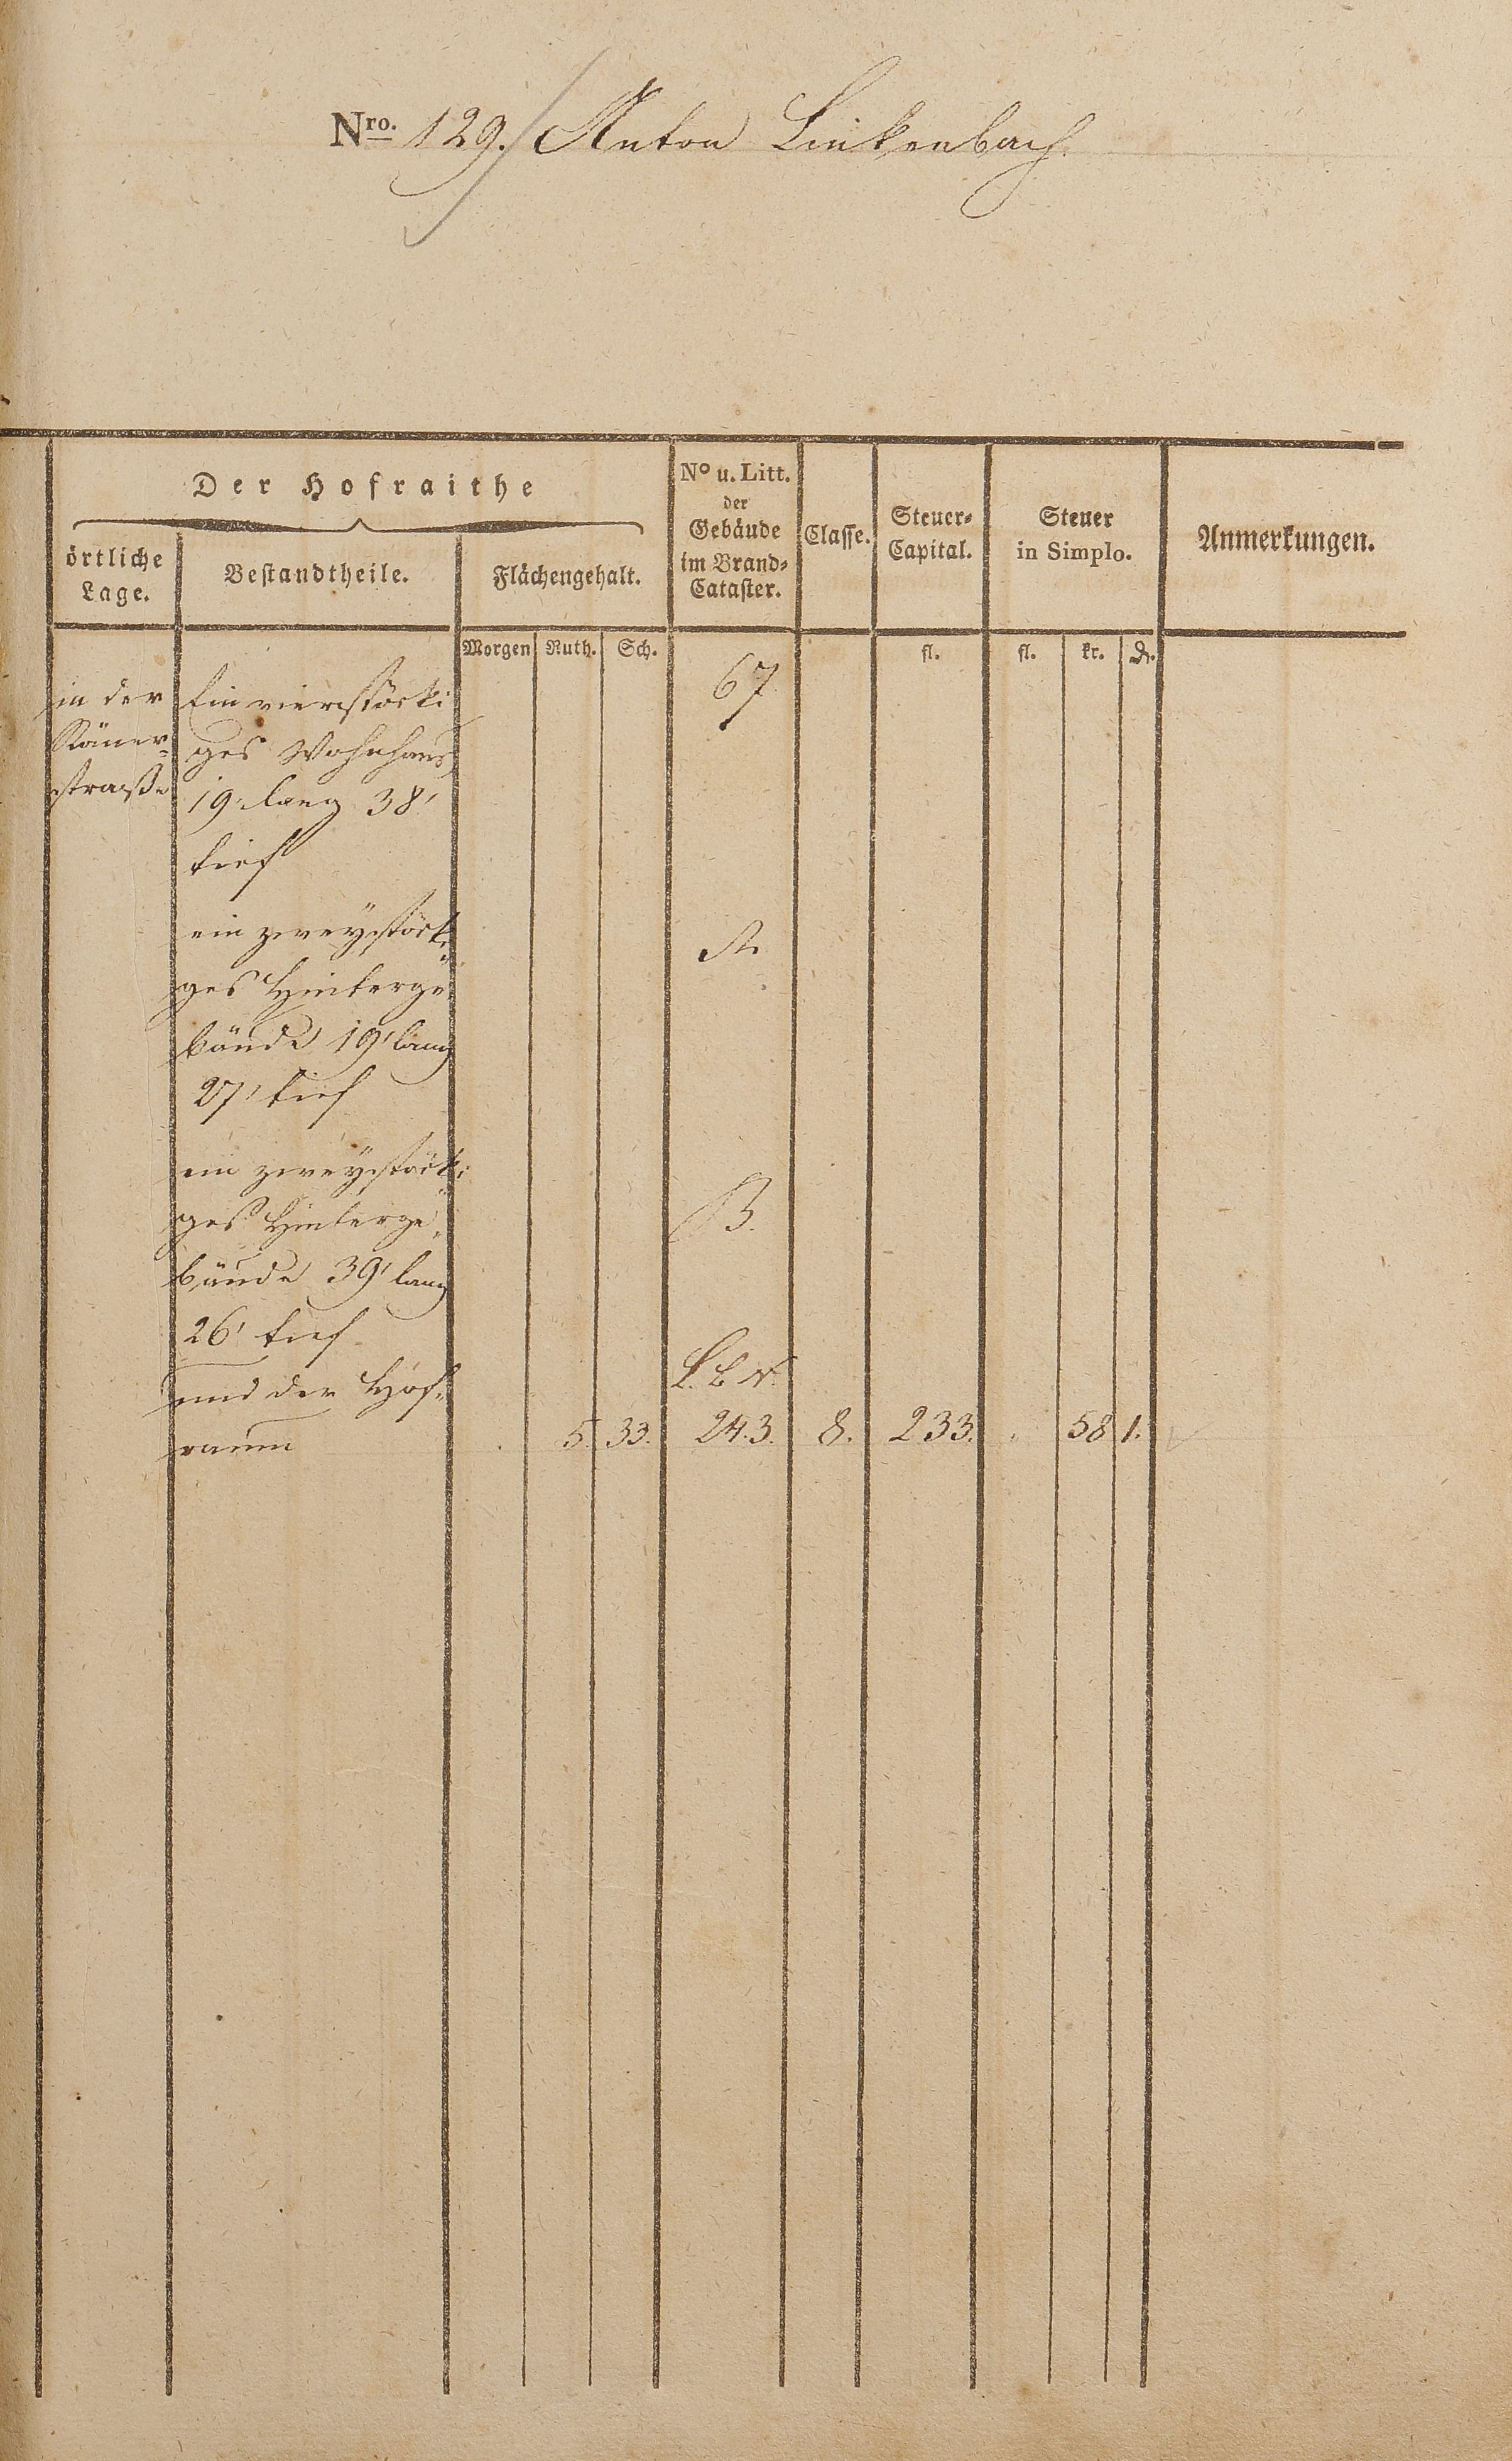 Nro. 129. Anton Linkenbach
Der Hofraithe
örtliche Lage.
Bestandtheile.
Flächengehalt.
No u. Litt. der Gebäude im Brand-Cataster.
Classe.
Steuer-Capital.
Steuer in Simplo.
Anmerkungen.
Morgen Ruth. Sch. fl. fl. kr. d.
in der Ein vierstöcki 67
ges Wohnhaus
straße 19' lang 38'
tief
ein zweystöcki A.
ges Hinterge
bäude 19' lang
27' tief
ein zweystöcki
ges Hinterge B.
bäude 39' lang
26' tief
und der Hof- L. B. N.
raum 5. 33. 243. 8. 233. 58 1.